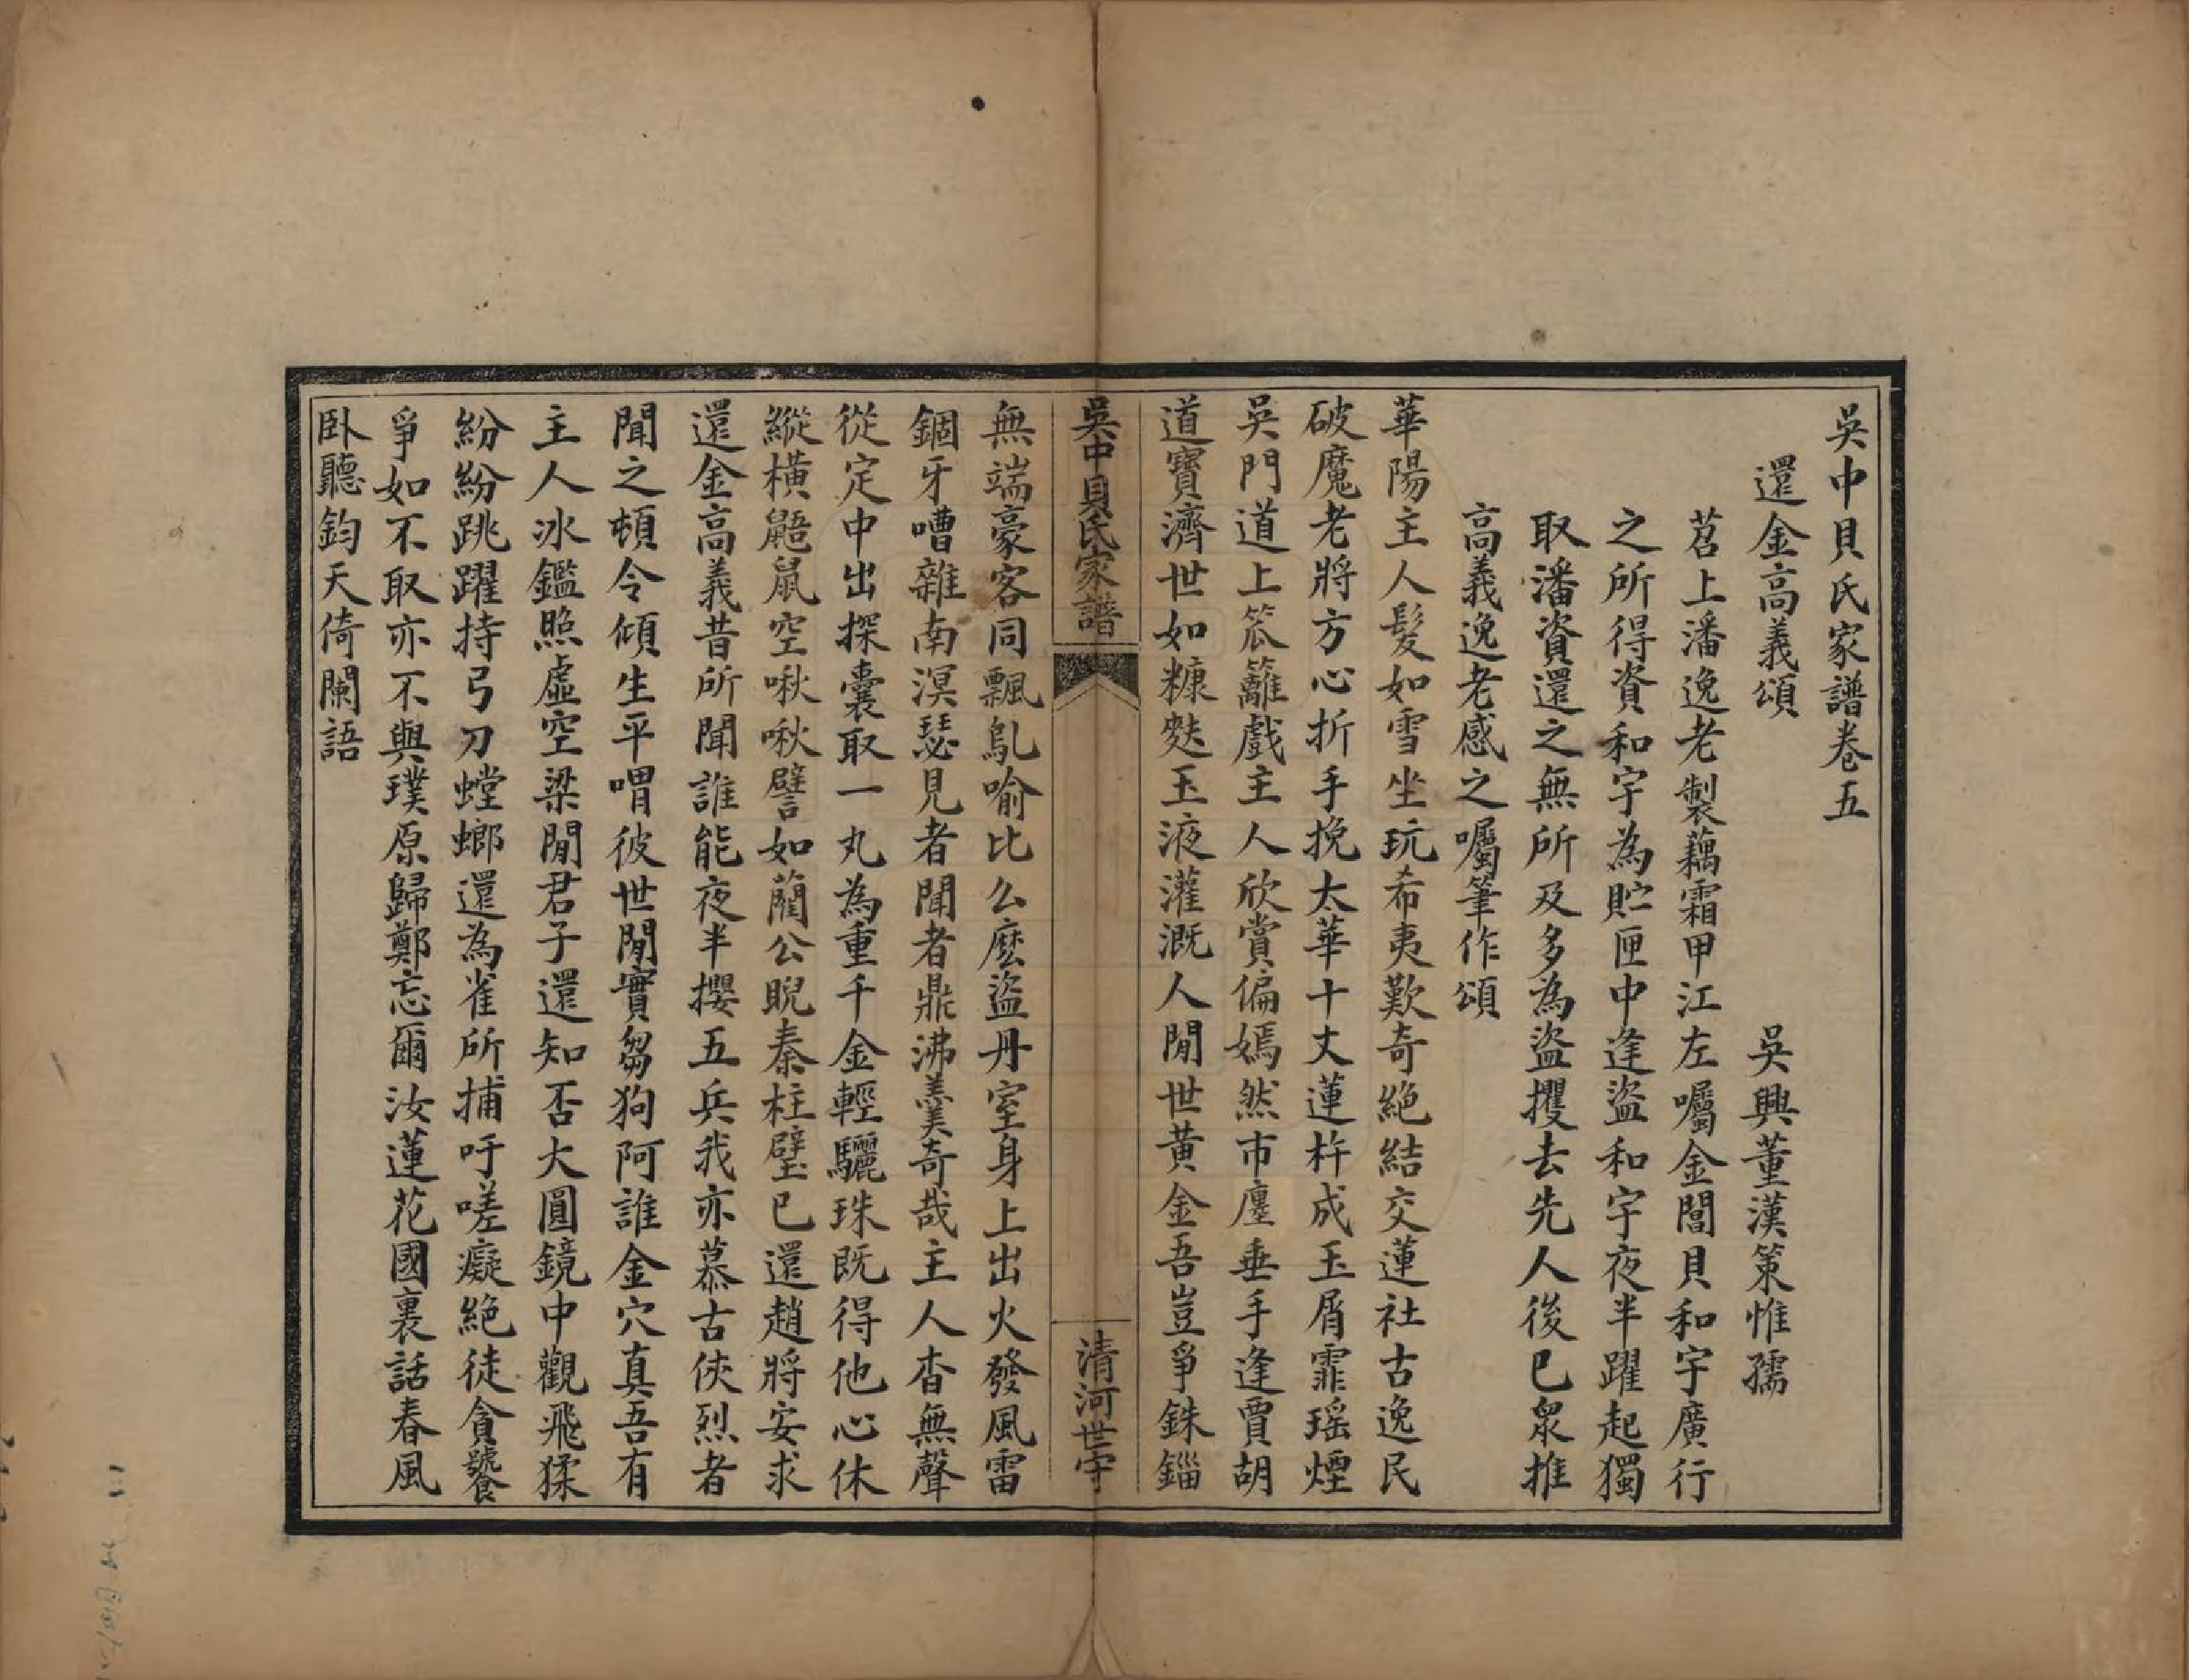 吳中貝氏家譜卷五
還金高義頌　吳興董漢策惟孺
苕上潘逸老製藕霜甲江左囑金閶貝和宇廣行
之所得資和宇為貯匣中逢盜和宇夜半躍起獨
取潘資還之無所及多為盜攫去先人後已眾推
高義逸老感之囑筆作頌
華陽主人髮如雪坐玩希夷歎奇絕結交蓮社古逸民
破魔老將方心折手挽太華十丈蓮杵成玉屑霏瑤煙
吳門道上笊籬戲主人欣賞偏嫣然市廛垂手逢賈胡
道寶濟世如糠麩玉液灌溉人閒世黃金吾豈爭銖錙
吳中貝氏家譜
清河世守
無端豪客同飄鳦喻比么麼盜丹室身上出火發風雷
錮牙嘈雜南溟瑟見者聞者鼎沸羹奇哉主人杳無聲
從定中出探囊取一丸為重千金輕驪珠既得他心休
縱橫鼯鼠空啾啾譬如藺公睨秦柱璧已還趙將安求
還金高義昔所聞誰能夜半攖五兵我亦慕古俠烈者
聞之頓令傾生平喟彼世閒實芻狗阿誰金穴真吾有
主人冰鑑照虛空梁閒君子還知否大圓鏡中觀飛猱
紛紛跳躍持弓刀螳螂還為雀所捕吁嗟癡絕徒貪饕
爭如不取亦不與璞原歸鄭忘爾汝蓮花國裏話春風
臥聽鈞天倚闌語